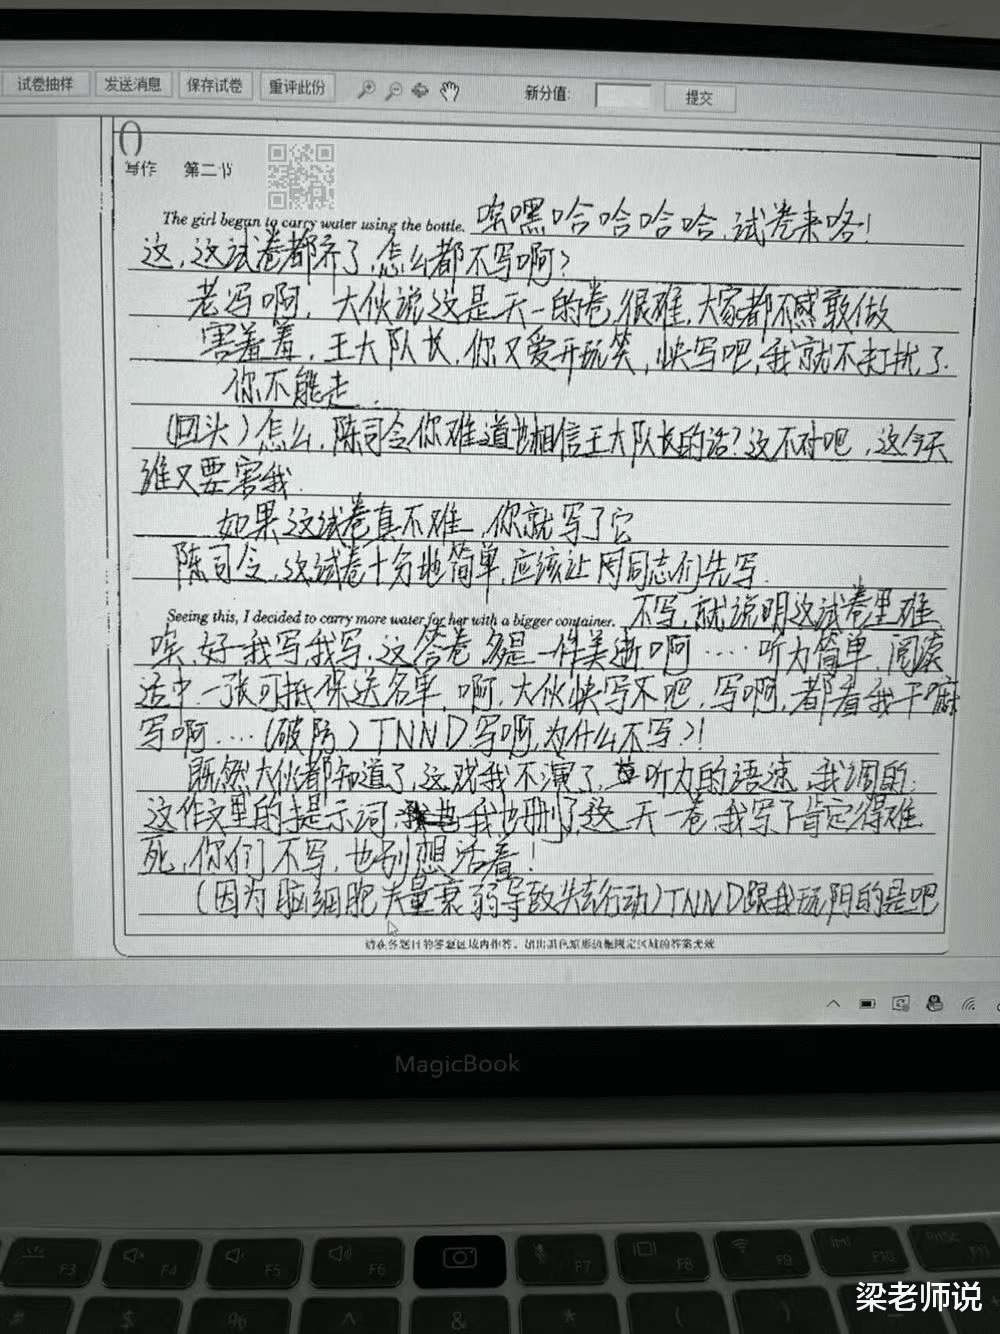 试卷抽样 发送消息 保存试卷 重评此份 新分值: 提交
0
写作 第二节
The girl began to carry water using the bottle. 嘿哈哈哈哈,试卷来咯!
这,这试卷都齐了,怎么都不写啊?
老冯啊,大伙说这是天一的卷,很难,大家都不敢做
害羞羞,王大队长,你又爱开玩笑,快写吧,我就不打扰了.
你不能走..
(回头)怎么,陈司令你难道也相信王大队长的话?这不对吧,这今天
谁又要害我.
如果这试卷真不难,你就写了它
陈司令,这试卷十分地简单,应该让同志们先写.
Seeing this, I decided to carry more water for her with a bigger container. 不写,就说明这试卷里难
唉,好我写我写,这答卷多是一件美逝啊····听力简单,阅读
适中,一张可抵保送名单,啊,大伙快写不吧,写啊,都看我干嘛
写啊····(破防)TNND,写啊,为什么不写?!
既然大伙都知道了,这戏我不演了,听力的语速,我调的;
这作文里的提示词,我也删了,这天一卷,我写了肯定得难
死,你们不写,也别想活着!
(因为脑细胞大量衰弱导致失去行动)TNND跟我玩阴的是吧
请在各题目的答题区域内作答,超出黑色矩形边框限定区域的答案无效
MagicBook
F3 F4 F5 F6 F7 F8 F9 F10 F11
% ^ & * ( )
梁老师说